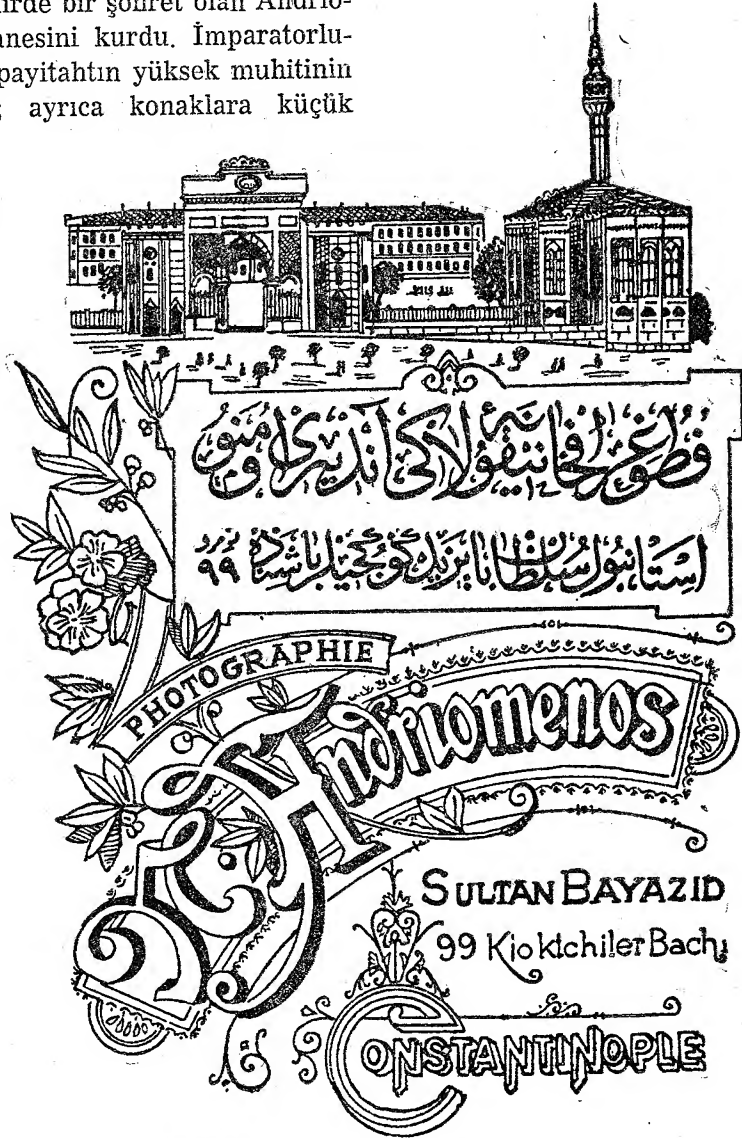 nirde bir şöhret olan Andrio-
anesini kurdu. İmparatorlu-
payitahtın yüksek muhitinin
; ayrıca konaklara küçük
فطوغرافخانهٔ نیقولاکی آندریومنو
استانبول سلطان بایزید کوکجیلر باشنده نومرو ٩٩
PHOTOGRAPHIE
N. Andriomenos
SULTAN BAYAZID
99 Kioktchiler Bachi
CONSTANTINOPLE